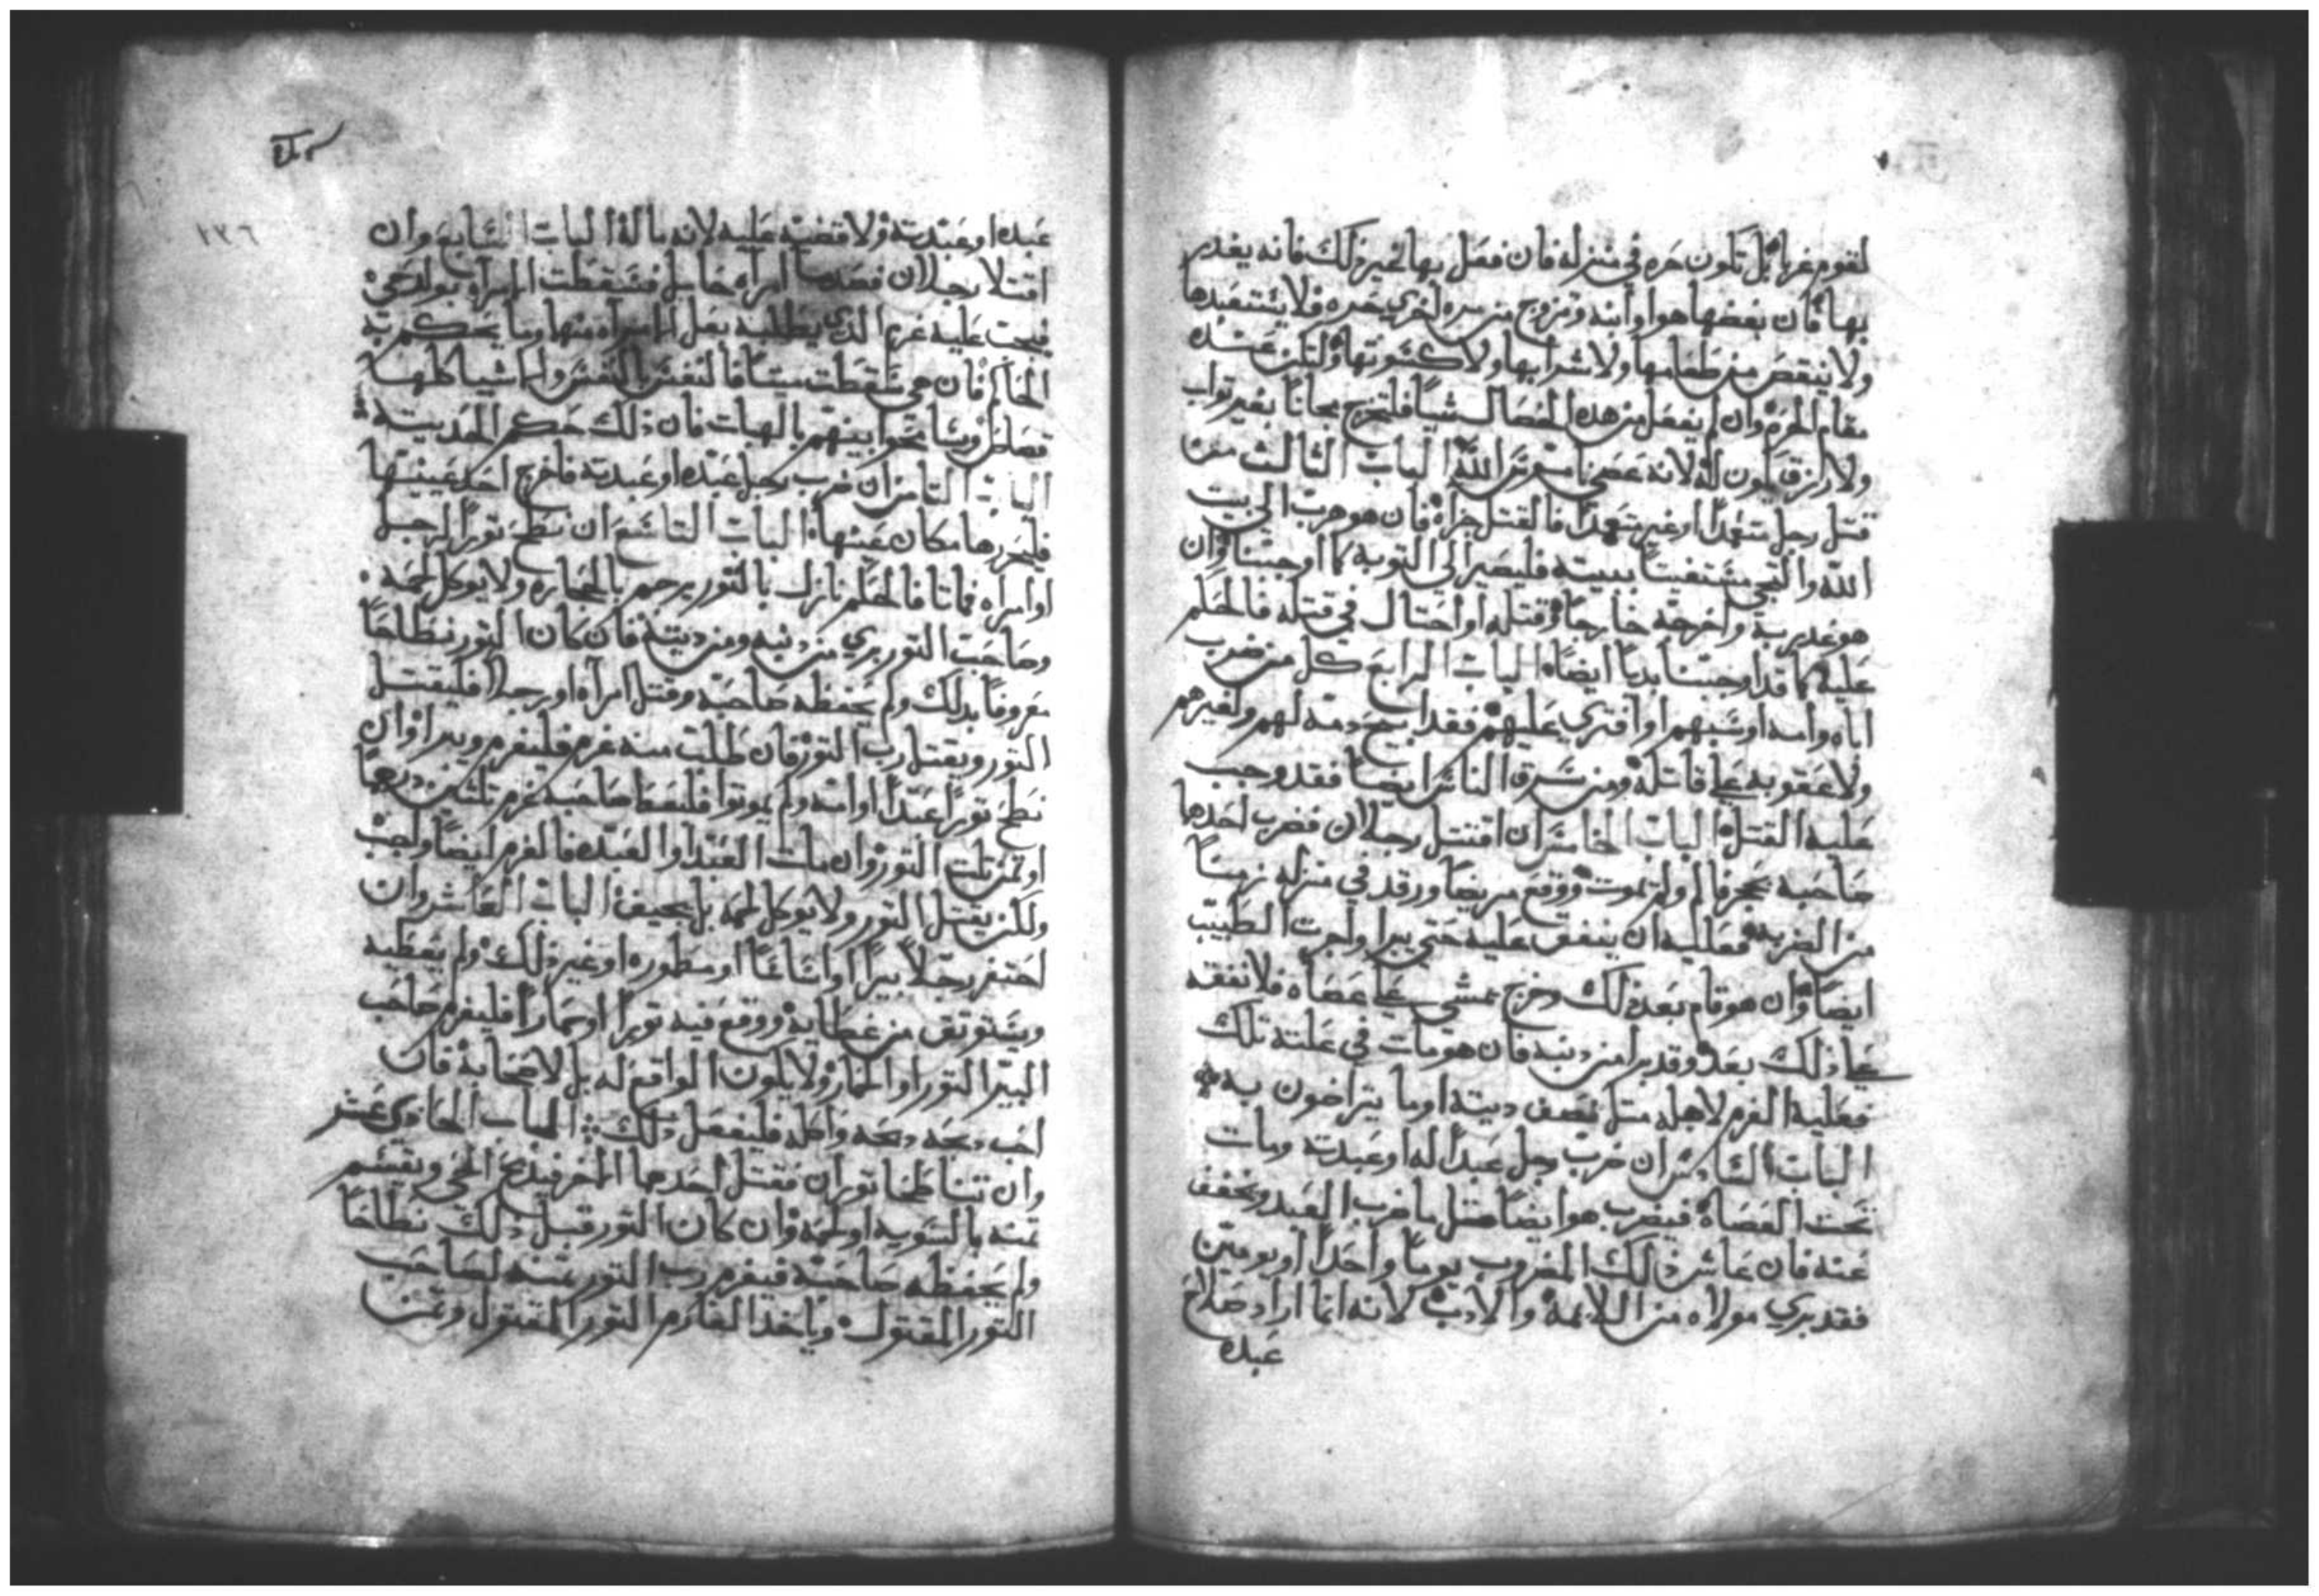 لقوم غربا بل تكون حره في منزله فان فعل بها غير ذلك فانه يغدر
بها فان بغضها هوا وابنه وتزوج من مره اخري حره فلا يستعبدها
ولا ينقص من طعامها ولا شرابها ولا كسوتها ولتكن عنده
مقام الحره وان لم يفعل من هذه الخصال شياً فلتخرج مجاناً بغير تواب
ولا رزق يكون له لانه عصي الله الباب الثالث من
قتل رجل متعمداً او غير متعمداً فالقتل جزاه فان هو هرب الي بيت
الله والتجي مستغيتاً ببيته فليصير الي التوبه كما اوجبنا وان
هو غدر به واخرجه خارجاً وقتله او احتال في قتله فالحكم
عليه كما قد اوجبنا بدياً ايضاً الباب الرابع كل من ضرب
اباه وامه او سبهم او افتري عليهم فقد ابيح دمه لهم ولغيرهم
ولا عقوبه علي قاتله ومن سرق الناس ايضاً فقد وجب
عليه القتل الباب الخامس ان اقتتل رجلان فضرب احدها
صاحبه بحجر فالم ولم يموت ووقع مريضاً ورقد في منزله زمناً
من الضربه فعلليه ان ينفق عليه حتي يبرا واجرت الطبيب
ايضاً وان هو قام بعد ذلك وخرج يمشي علي عصاه فلا نفقه
علي ذلك بعد وقد برا من دنبه فان هو مات في علته تلك
فعليه الغرم لاهله متل نصف ديته او ما يتراضون به
الباب السادس ان ضرب رجل عبداً له او عبدته ومات
تحت العصاه فيضرب هو ايضاً متل ما ضرب العبد ويخفف
عنه فان عاش ذلك المضروب يوماً واحداً او يومين
فقد بري مولاه من اللايمه والادب لانه انما اراد صلاح
عبده
١٣٦
عبده او عبدته ولا قضيه عليه لانه ماله الباب السابع وان
اقتتلا رجلان فصدما امراه حامل فسقطت المراه بولد حي
فيجب عليه غرم الدي يطلبه بعل المراه منها وما يحكم به
الحاكم فان هي سقطت ميتاً فالنفس بالنفس ولما شياكلها
قصاص وشا يحوا بينهم بالهبات فان ذلك حكم المديته
الباب التامن ان ضرب رجل عبده او عبدته فاخرج احد عينيها
فليحررها مكان عينها الباب التاسع ان نطح توراً لرجل
او امراه فماتا فالحكم نازل بالتور يرجم بالحجاره ولا يوكل لحمه
وصاحب التور بري من دنبه ومن ديته فان كان التور نطاحاً
معروفاً بدلك ولم يحفظه صاحبه وقتل امراه او رجلا فليقتل
التور ويقتل رب التور فان طلب منه غرم فليغرم ويبرا وان
نطح توراً عبداً او امه ولم يموتوا فليعطا صاحبه غرم تلتين درهماً
او تمن تلت التور وان مات العبد او العبده فالغرم ايضاً واجب
ولكن يقتل التور ولا يوكل لحمه بل يجيف الباب العاشر وان
احتفر رجلاً بيراً او اساساً او مطوره او غير ذلك ولم يغطيه
ويستوتق من غطايه ووقع فيه توراً او حماراً فليغرم صاحب
البير التور او الحمار ولا يكون الواقع له بل لاصحابه فان
احب دبحه دبحه واكله فليفعل دلك الباب الحادي عشر
وان تناطحا توران فقتل احدهما الاخر فيدبح الحي ويقسم
تمنه بالسويه او لحمه وان كان التور قبل دلك نطاحاً
ولم يحفظه صاحبه فيغرم رب التور تمنه لصاحب
التور المقتول وياخد الغارم التور المقتول وتمن